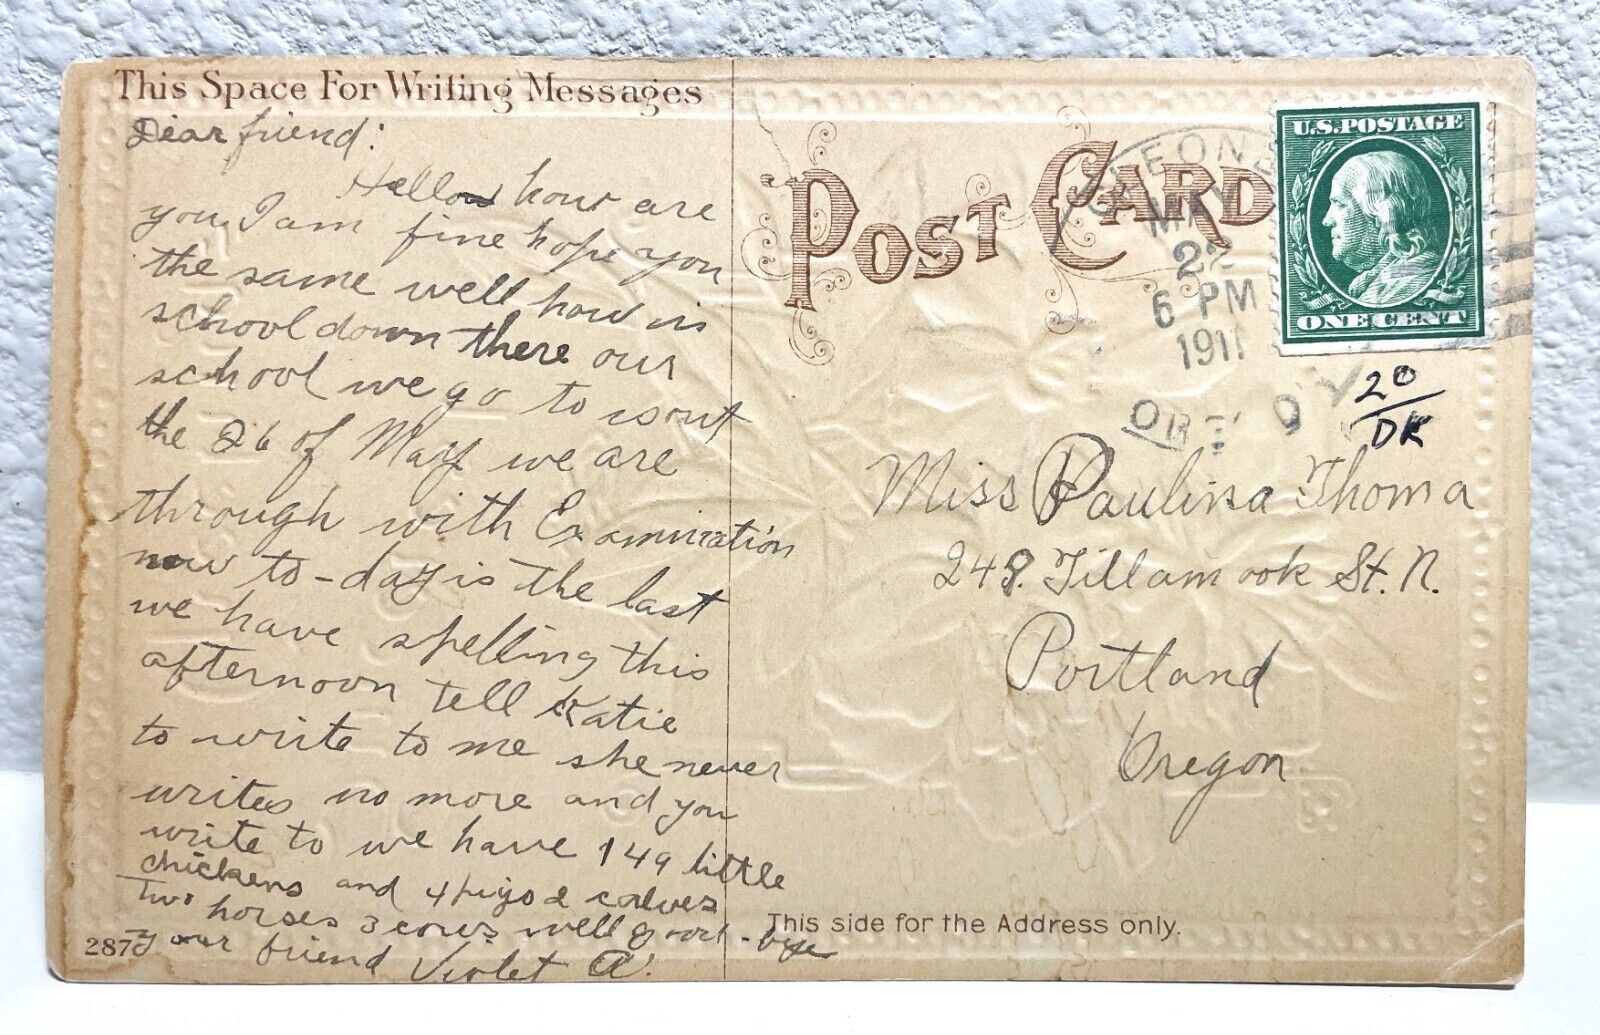 This Space For Writing Messages
Dear friend:
Hello how are
you I am fine hope you
the same well how is
school down there our
school we go to is out
the 26 of May we are
through with Examination
now to-day is the last
we have spelling this
afternoon tell Katie
to write to me she never
writes no more and you
write to we have 149 little
chickens and 4 pigs 2 calves
Two horses 3 cows well good-bye
your friend Violet A.
287
POST CARD
MAY
22
6 PM
1911
U.S. POSTAGE
ONE CENT
20
DK
Miss Paulina Thoma
248. Tillamook St. N.
Portland
Oregon
This side for the Address only.